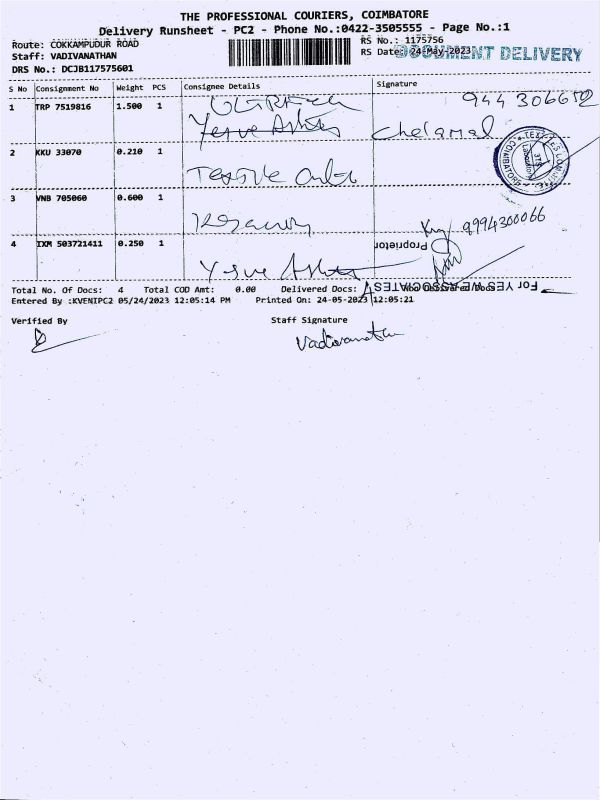 THE PROFESSIONAL COURIERS, COIMBATORE
Delivery Runsheet - PC2 - Phone No.:0422-3505555 - Page No.:1
Route: COKKAMPUDUR ROAD
Staff: VADIVANATHAN
DRS No.: DCJB117575601
RS No.: 1175756
RS Date: 24-May-2023
DOCUMENT DELIVERY
S No Consignment No Weight PCS Consignee Details Signature
1 TRP 7519816 1.500 1
944 306652
2 KKU 33070 0.210 1
3 VNB 705060 0.600 1
9994300066
Proprietor
4 IXM 503721411 0.250 1
For YES
ASSOCIATES
Total No. Of Docs: 4 Total COD Amt: 0.00 Delivered Docs: 4
Entered By :KVENIPC2 05/24/2023 12:05:14 PM Printed On: 24-05-2023 12:05:21
Verified By Staff Signature
Vadivanathan